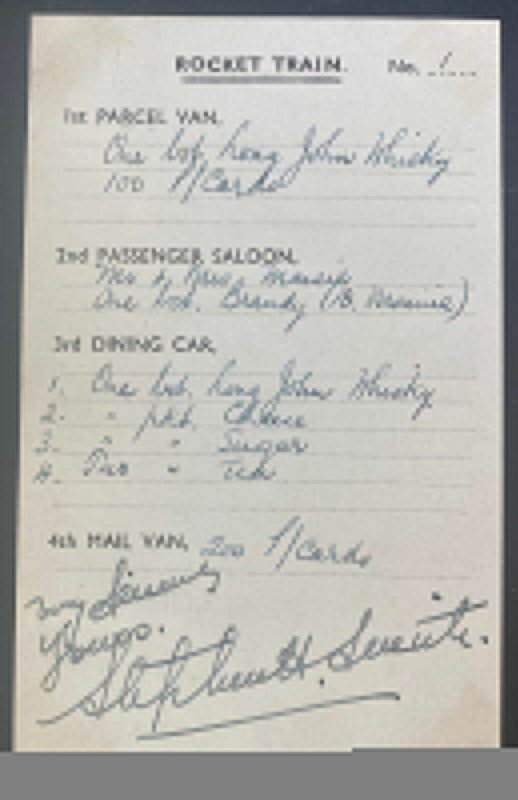 ROCKET TRAIN. No. 1
1st PARCEL VAN.
One bot. Long John Whisky
100 P/Cards
2nd PASSENGER SALOON.
Mr & Mrs.
One bot. Brandy (B. Marine)
3rd DINING CAR.
1. One bot. Long John Whisky
2. " pkt. Cheese
3. " " Sugar
4. Two " Tea
4th MAIL VAN. 200 P/Cards
Very Sincerely
Yours.
Stephen H. Smith.